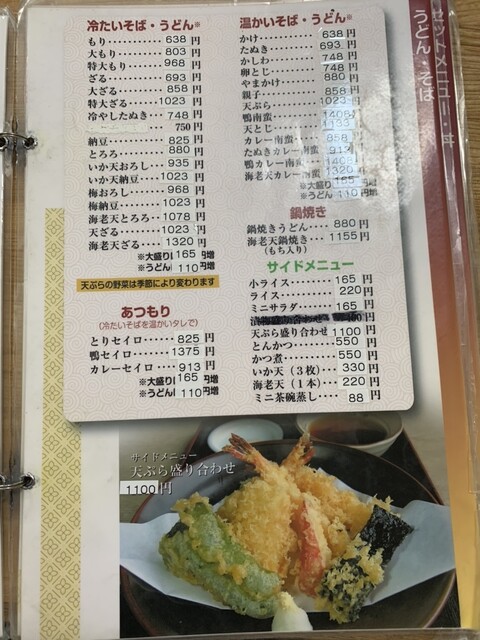 セットメニュー・丼
うどん・そば
冷たいそば・うどん※
もり・・・・・・・638円
大もり・・・・・・803円
特大もり・・・・・968円
ざる・・・・・・・693円
大ざる・・・・・・858円
特大ざる・・・・・1023円
冷やしたぬき・・・748円
750円
納豆・・・・・・・825円
とろろ・・・・・・880円
いか天おろし・・・935円
いか天納豆・・・・1023円
梅おろし・・・・・968円
梅納豆・・・・・・1023円
海老天とろろ・・・1078円
天ざる・・・・・・1023円
海老天ざる・・・・1320円
※大盛り165円増
※うどん110円増
天ぷらの野菜は季節により変わります
あつもり
(冷たいそばを温かいタレで)
とりセイロ・・・・825円
鴨セイロ・・・・・1375円
カレーセイロ・・・913円
※大盛り165円増
※うどん110円増
温かいそば・うどん※
かけ・・・・・・・638円
たぬき・・・・・・693円
かしわ・・・・・・748円
卵とじ・・・・・・748円
やまかけ・・・・・880円
親子・・・・・・・858円
天ぷら・・・・・・1023円
鴨南蛮・・・・・・1408円
天とじ・・・・・・1133円
カレー南蛮・・・・858円
たぬきカレー南蛮・913円
鴨カレー南蛮・・・1408円
海老天カレー南蛮・1320円
※大盛り165円増
※うどん110円増
鍋焼き
鍋焼きうどん・・・880円
海老天鍋焼き・・・1155円
(もち入り)
サイドメニュー
小ライス・・・・・165円
ライス・・・・・・220円
ミニサラダ・・・・165円
天ぷら盛り合わせ 1100円
とんかつ・・・・・550円
かつ煮・・・・・・550円
いか天(3枚)・・330円
海老天(1本)・・220円
ミニ茶碗蒸し・・・88円
サイドメニュー
天ぷら盛り合わせ
1100円